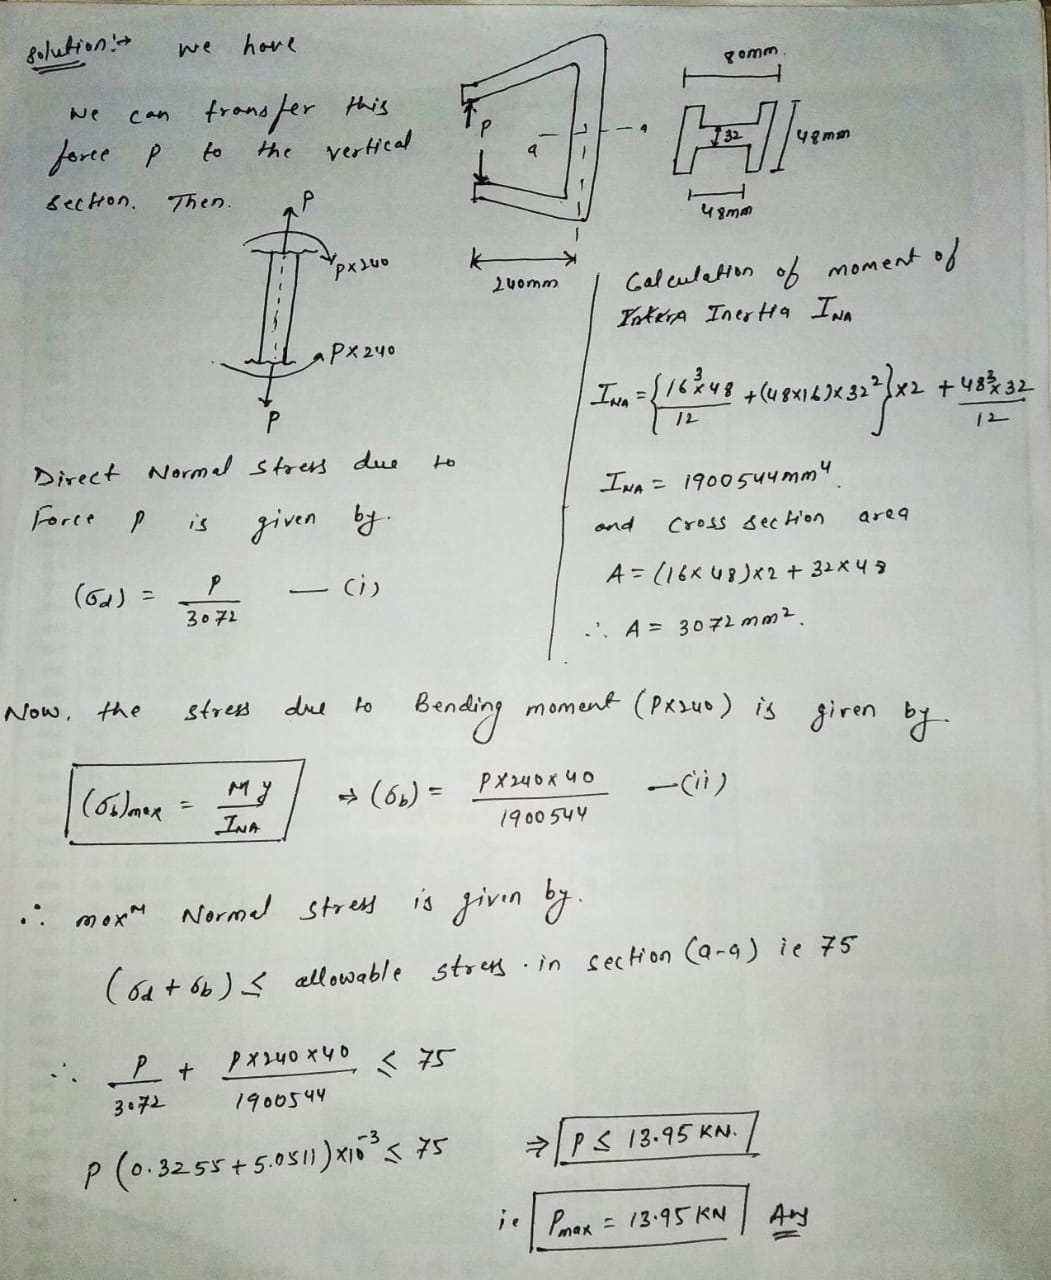 Solution:→ we have
we can transfer this
force P to the vertical
section. Then.
P
P×240
P×240
P
P
a
a
240mm
80mm.
32
48mm
48mm
Calculation of moment of
Inertia I_NA
I_NA = {16³×48/12 + (48×16)×32²}×2 + 48³×32/12
I_NA = 1900544 mm⁴.
and cross section area
A = (16×48)×2 + 32×48
∴ A = 3072 mm².
Direct Normal stress due to
Force P is given by.
(σd) = P/3072 — (i)
Now, the stress due to Bending moment (P×240) is given by.
(σb)max = My/I_NA ⇒ (σb) = P×240×40/1900544 — (ii)
∴ maxᵐ Normal stress is given by.
(σd + σb) ≤ allowable stress. in section (a-a) ie 75
∴ P/3072 + P×240×40/1900544 ≤ 75
P (0.3255 + 5.0511)×10⁻³ ≤ 75 ⇒ P ≤ 13.95 KN.
ie Pmax = 13.95 KN Ans